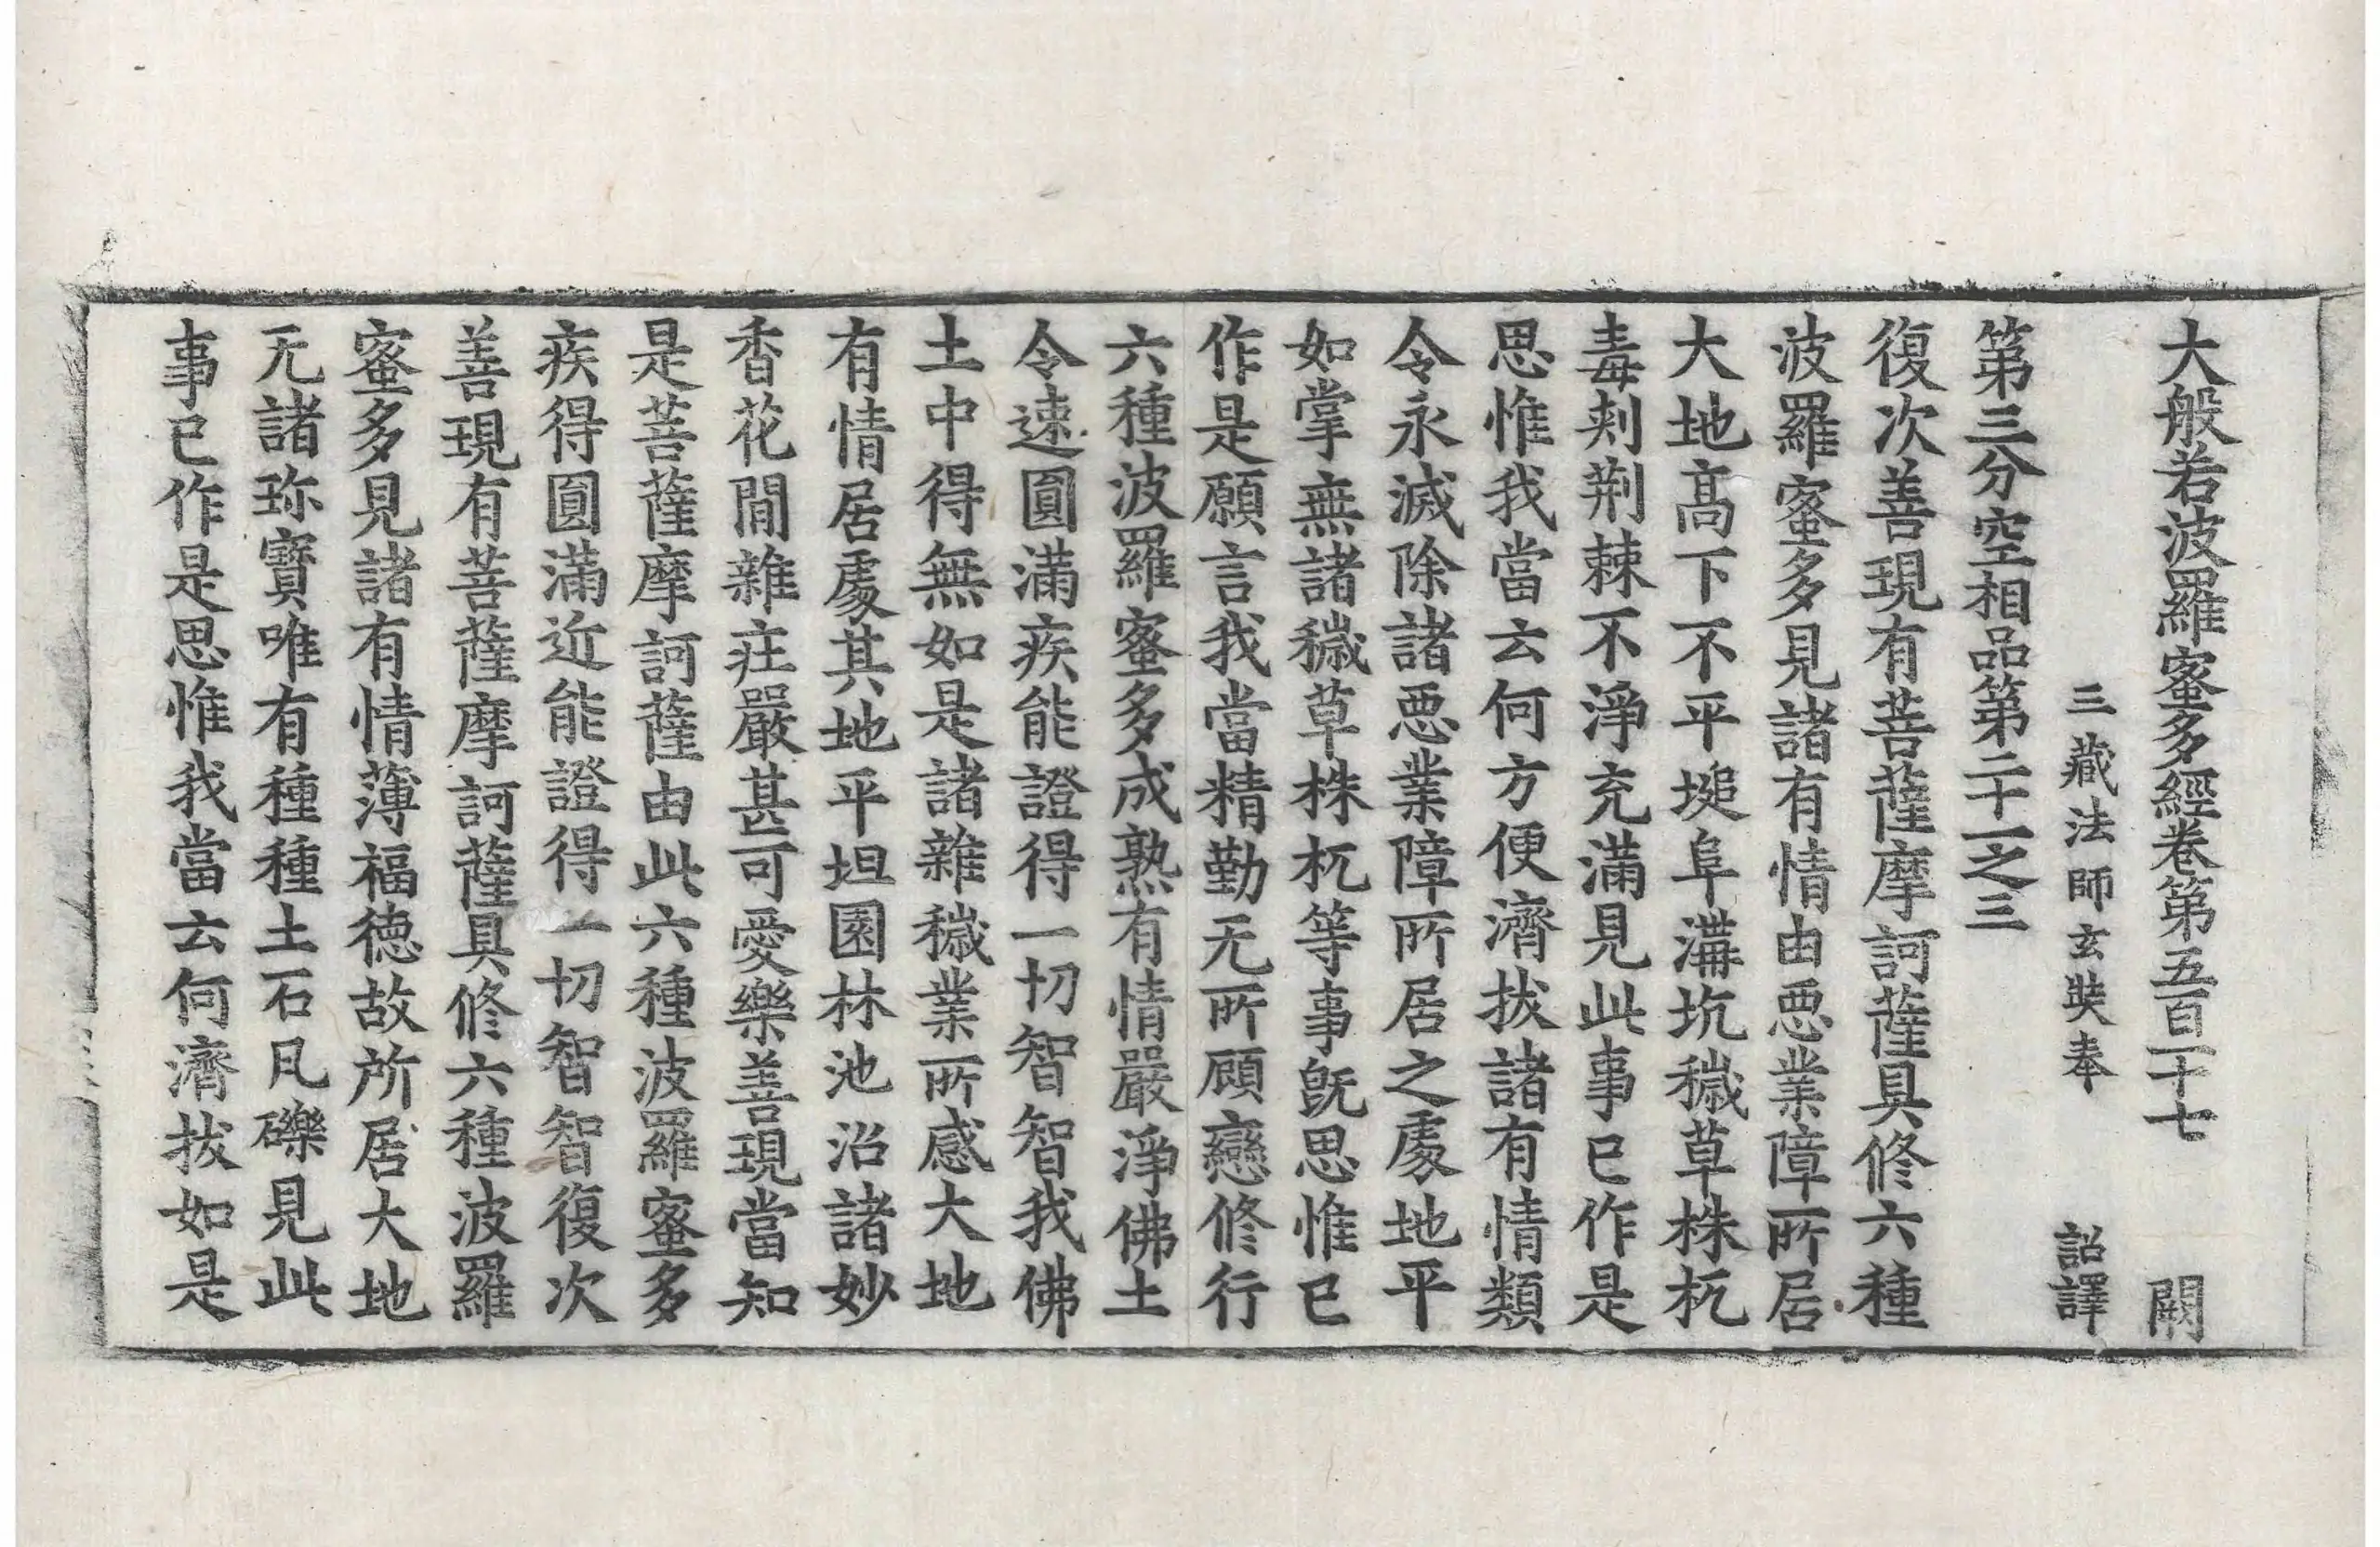 大般若波羅蜜多經卷第五百二十七 闕
三藏法師玄奘奉 詔譯
第三分空相品第二十一之三
復次善現有菩薩摩訶薩具修六種
波羅蜜多見諸有情由惡業障所居
大地高下不平塠阜溝坑穢草株杌
毒刾荆棘不淨充滿見此事已作是
思惟我當云何方便濟拔諸有情類
令永滅除諸惡業障所居之處地平
如掌無諸穢草株杌等事既思惟已
作是願言我當精勤无所顧戀修行
六種波羅蜜多成熟有情嚴淨佛土
令速圓滿疾能證得一切智智我佛
土中得無如是諸雜穢業所感大地
有情居處其地平坦園林池沼諸妙
香花間雜莊嚴甚可愛樂善現當知
是菩薩摩訶薩由此六種波羅蜜多
疾得圓滿近能證得一切智智復次
善現有菩薩摩訶薩具修六種波羅
蜜多見諸有情薄福德故所居大地
无諸珎寶唯有種種土石凡礫見此
事已作是思惟我當云何濟拔如是